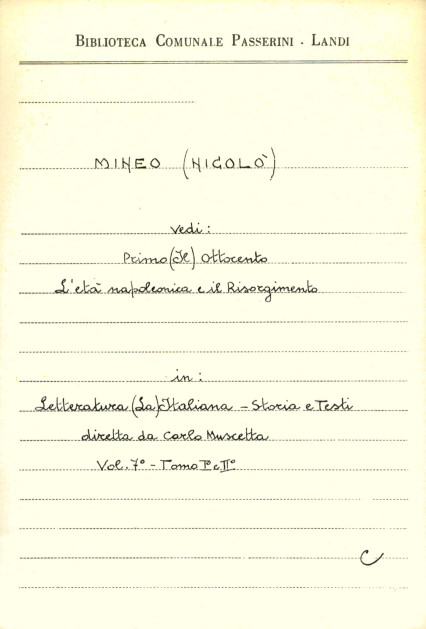 BIBLIOTECA COMUNALE PASSERINI · LANDI
MINEO (NICOLÒ)
vedi:
Primo (Il) Ottocento
L'età napoleonica e il Risorgimento
in:
Letteratura (La) Italiana - Storia e Testi
diretta da Carlo Muscetta
Vol. 7° - Tomo I° e II°
C